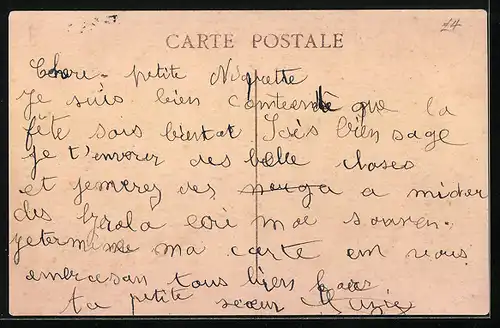 14
CARTE POSTALE
Chere petite
Je suis bien contente que la
fête sois bientot Sois bien sage
je t'enverer des belle choses
et jemerez des a
des ecri moe souven.
jetermine ma carte em vous
embrasan tous bien
ta petite sœur Suzie